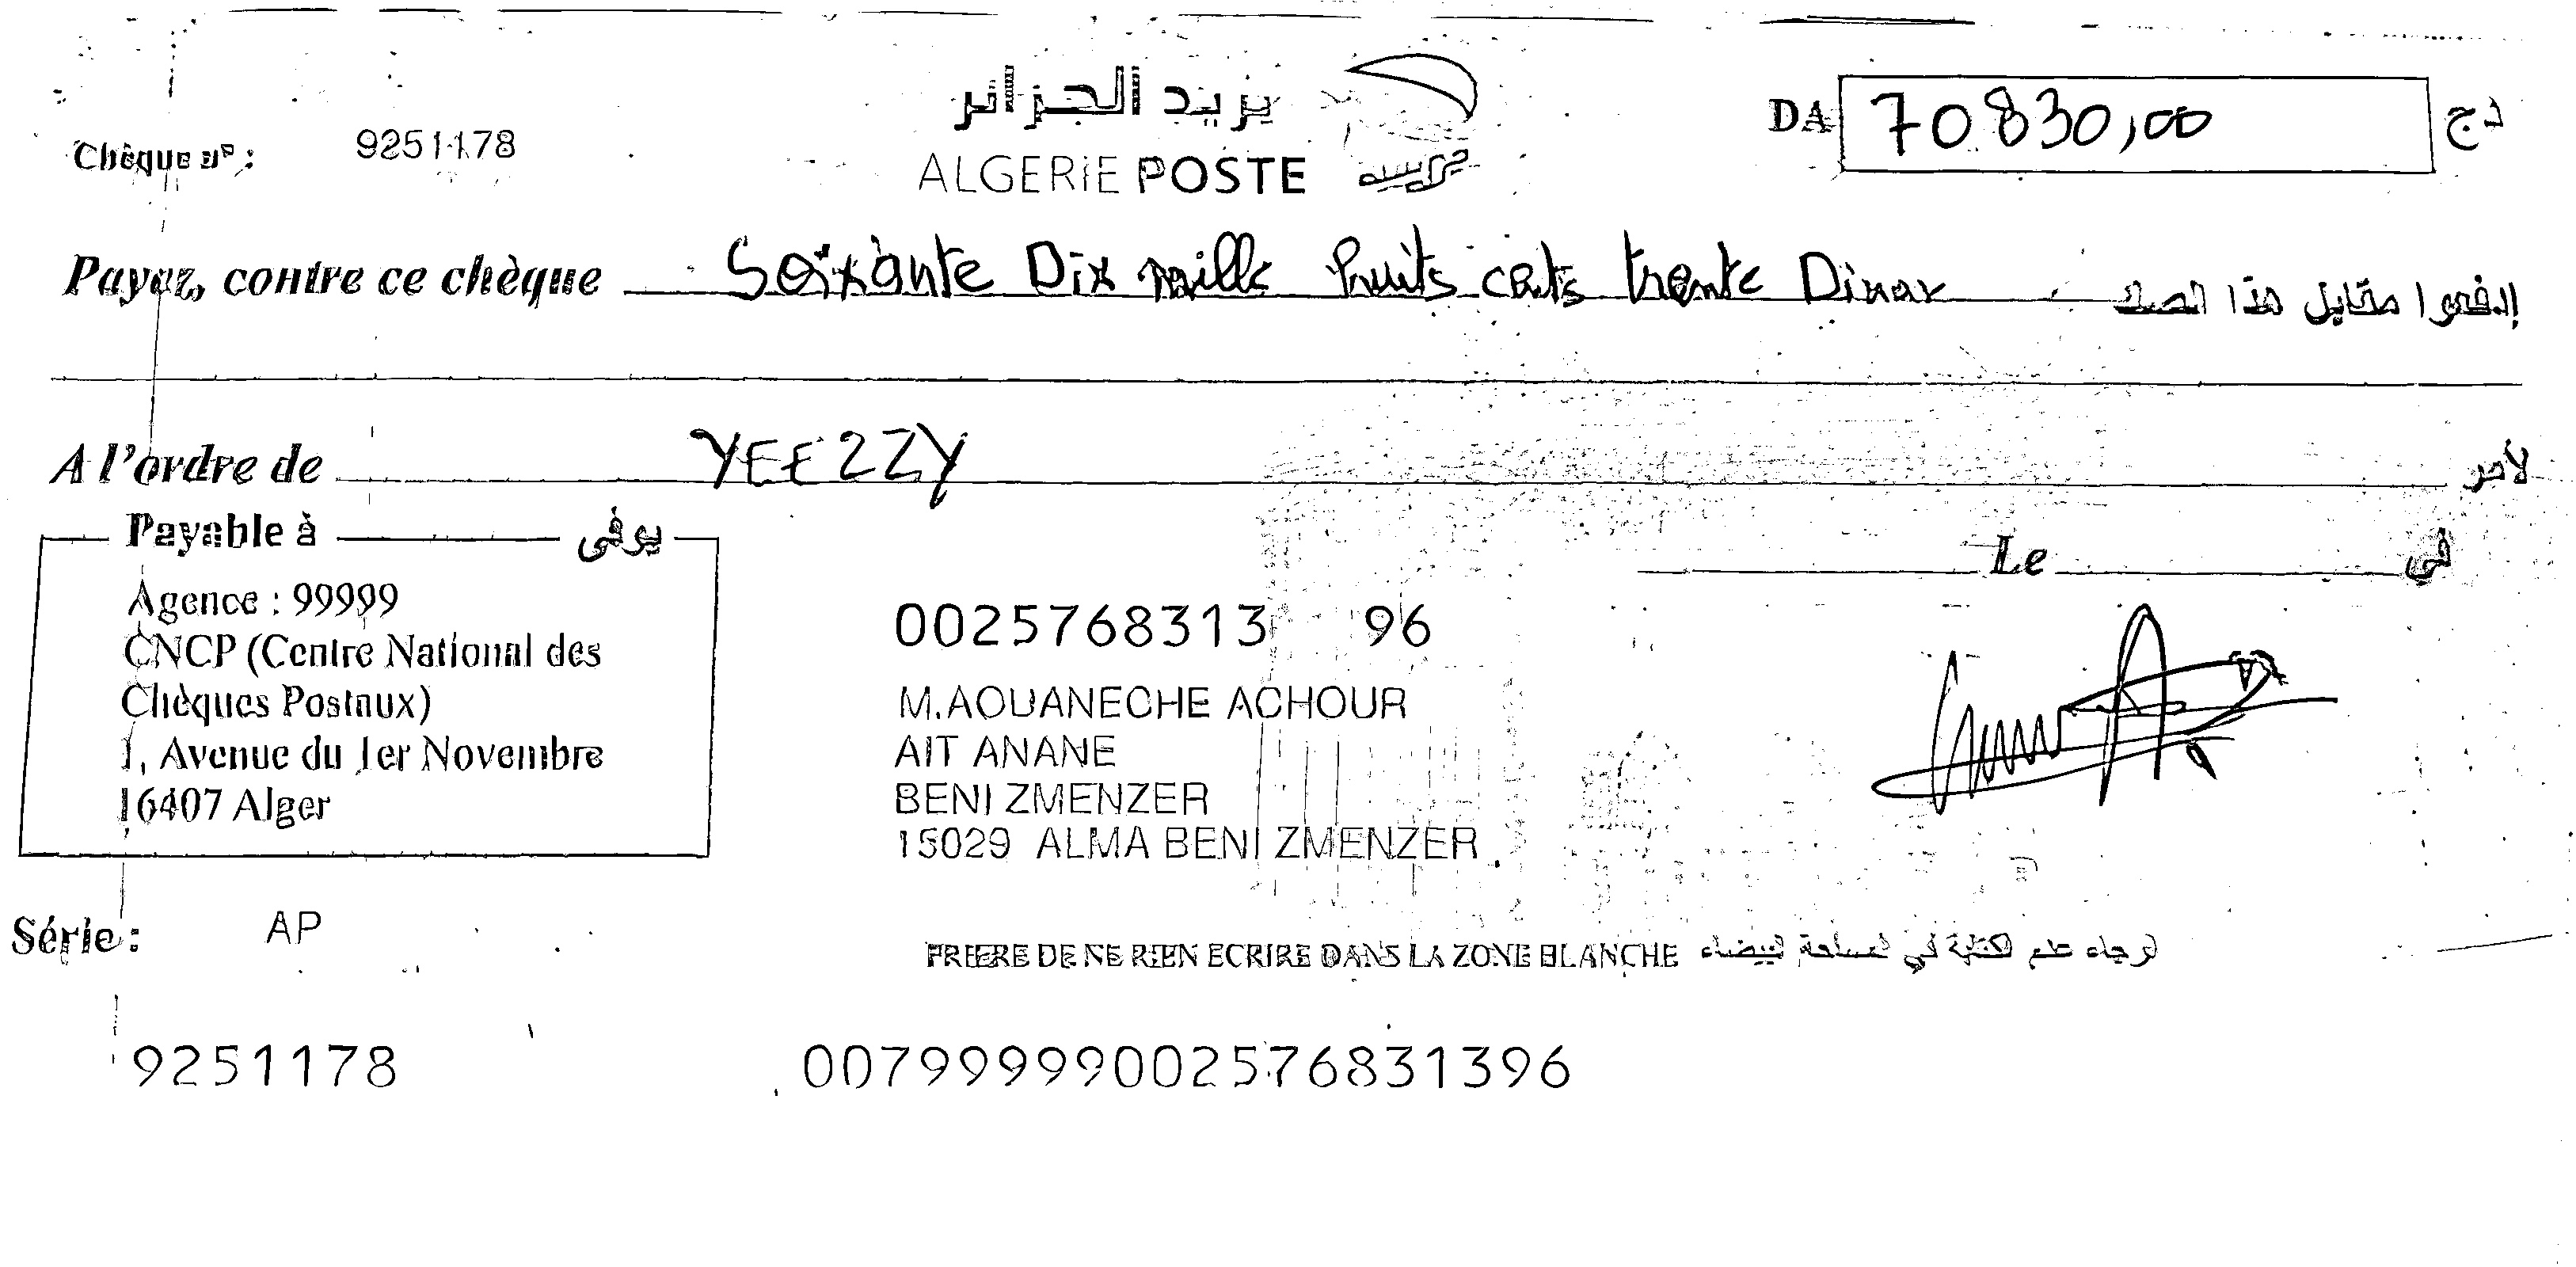 بريد الجزائر
ALGERIE POSTE
Chèque nº : 9251178
DA 70830,00 دج
Payez, contre ce chèque Soixante Dix mille huits cents trente Dinar إدفعوا مقابل هذا الصك
A l'ordre de YEEZZY لأمر
Payable à يوفى
Le في
Agence : 99999
CNCP (Centre National des
Chèques Postaux)
1, Avenue du 1er Novembre
16407 Alger
0025768313 96
M.AOUANECHE ACHOUR
AIT ANANE
BENI ZMENZER
15029 ALMA BENI ZMENZER
Série : AP
PRIERE DE NE RIEN ECRIRE DANS LA ZONE BLANCHE لرجاء عدم لكتابة في لمساحة لبيضاء
9251178 00799999002576831396